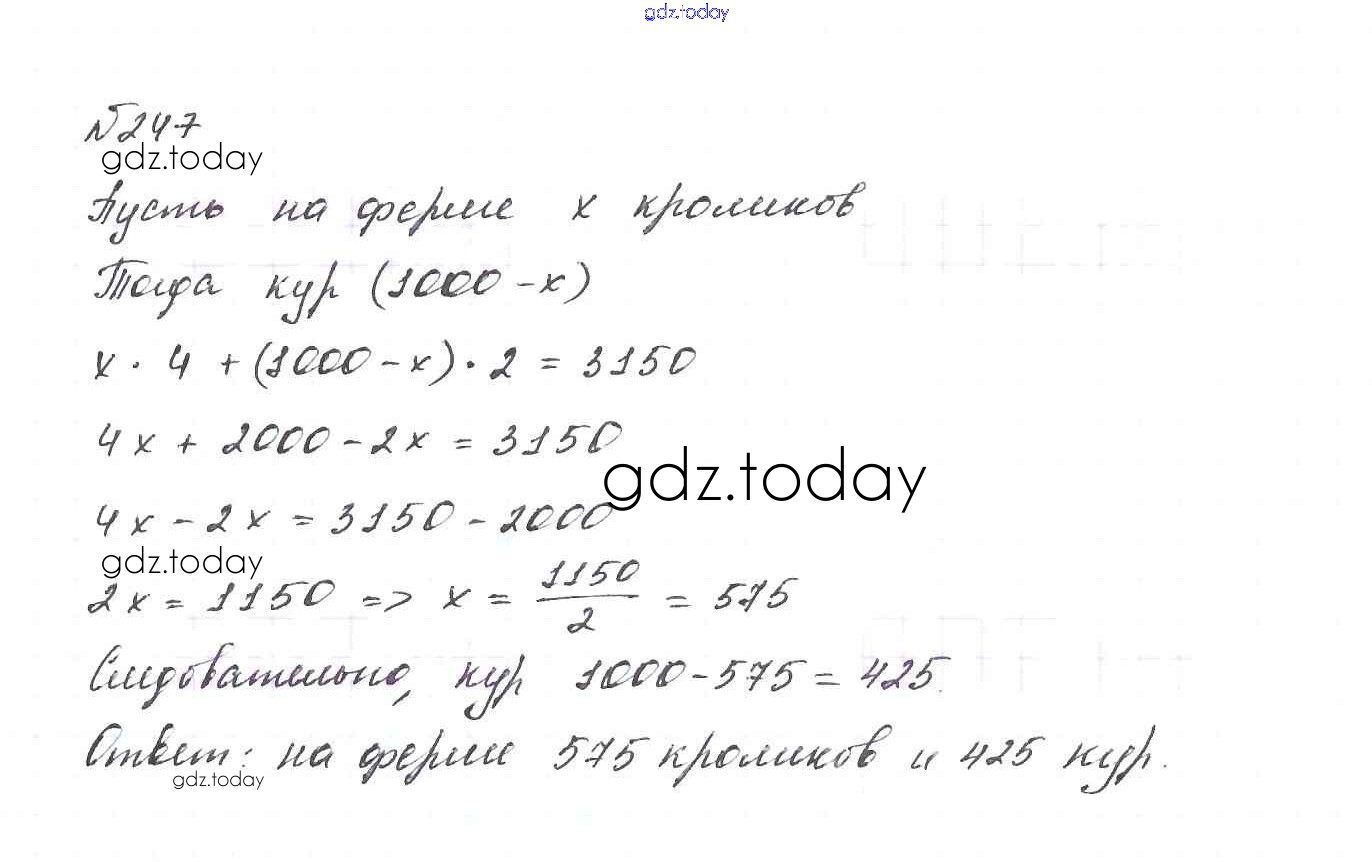 gdz.today
№247
gdz.today
Пусть на ферме x кроликов
Тогда кур (1000-x)
x · 4 + (1000-x) · 2 = 3150
4x + 2000-2x = 3150
gdz.today
4x - 2x = 3150-2000
gdz.today
2x = 1150 => x = 1150/2 = 575
Следовательно, кур 1000-575 = 425.
Ответ: на ферме 575 кроликов и 425 кур.
gdz.today